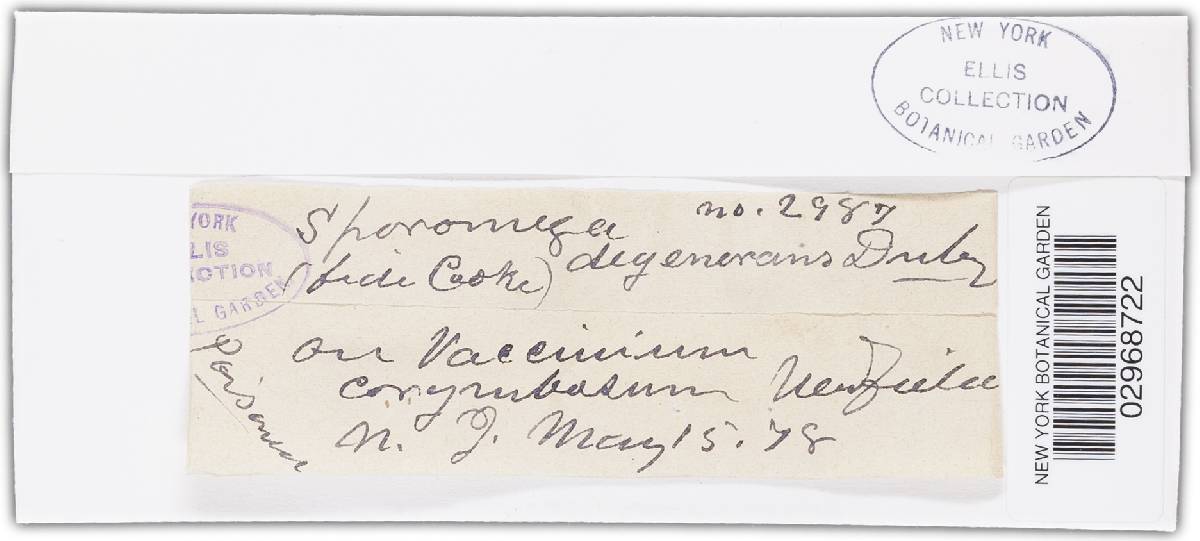 NEW YORK
ELLIS
COLLECTION
BOTANICAL GARDEN
no. 2987
Sporomega
degenerans Duby
(fide Cooke)
YORK
LLIS
ACTION
L GARDEN
on Vaccinium
corymbosum Newfield
N. J. May 15. 78
NEW YORK BOTANICAL GARDEN
02968722